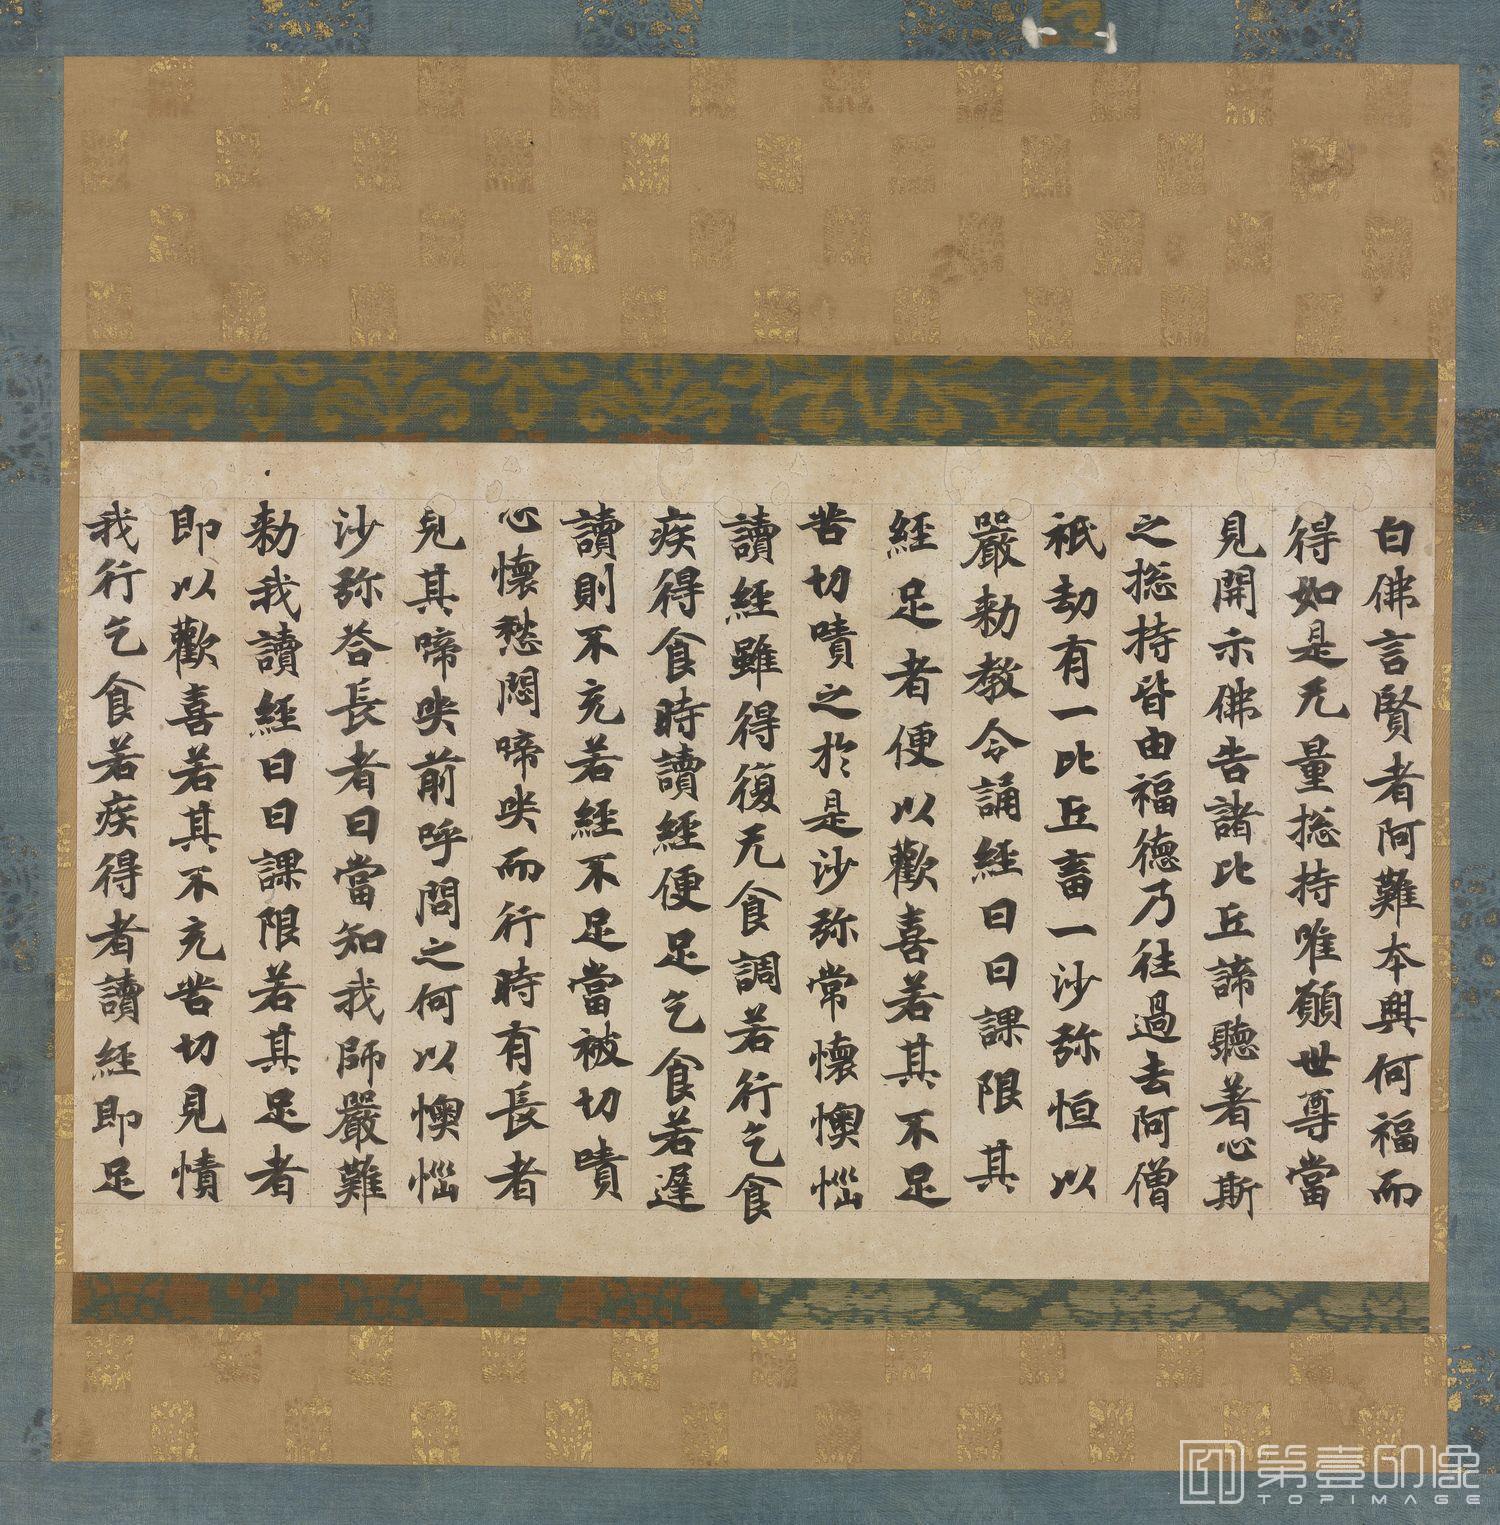 白佛言賢者阿難本興何福而
得如是无量揔持唯願世尊當
見開示佛告諸比丘諦聽著心斯
之揔持皆由福德乃往過去阿僧
祇劫有一比丘畜一沙弥恒以
嚴勑教令誦經日日課限其
經足者便以歡喜若其不足
苦切嘖之於是沙弥常懷懊惱
讀經雖得復无食調若行乞食
疾得食時讀經便足乞食若遲
讀則不充若經不足當被切嘖
心懷愁悶啼哭而行時有長者
見其啼哭前呼問之何以懊惱
沙弥荅長者曰當知我師嚴難
勑我讀經日日課限若其足者
即以歡喜若其不充苦切見憒
我行乞食若疾得者讀經即足
第壹印像
TOPIMAGE